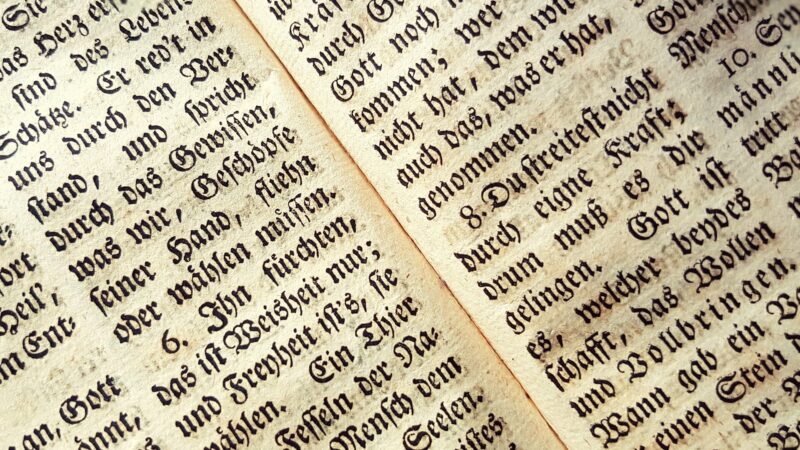 Sie
das Herz
sind des Lebens
Schätze. Er red't in
uns durch den Ver-
stand, und spricht
durch das Gewissen,
was wir, Geschöpfe
seiner Hand, fliehn
oder wählen müssen.
6. Ihn fürchten,
das ist Weisheit nur;
und Freyheit ists, sie
wählen. Ein Thier
Fesseln der Na-
Mensch dem
Seelen.
Heil',
Ent-
an, Gott
Kraft
durch
Gott noch
kommen; wer
nicht hat, dem
auch das, was er hat,
genommen.
8. Du streitest nicht
durch eigne Kraft;
drum muß es die
gelingen. Gott ist
es, welcher beydes
schafft, das Wollen
und Vollbringen.
Wann gab ein
einen Stein
der
10.
tritt